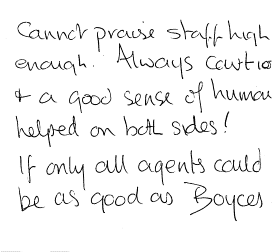 Cannot praise staff high
enough. Always courtio
& a good sense of humou
helped on both sides!
If only all agents could
be as good as Boyces